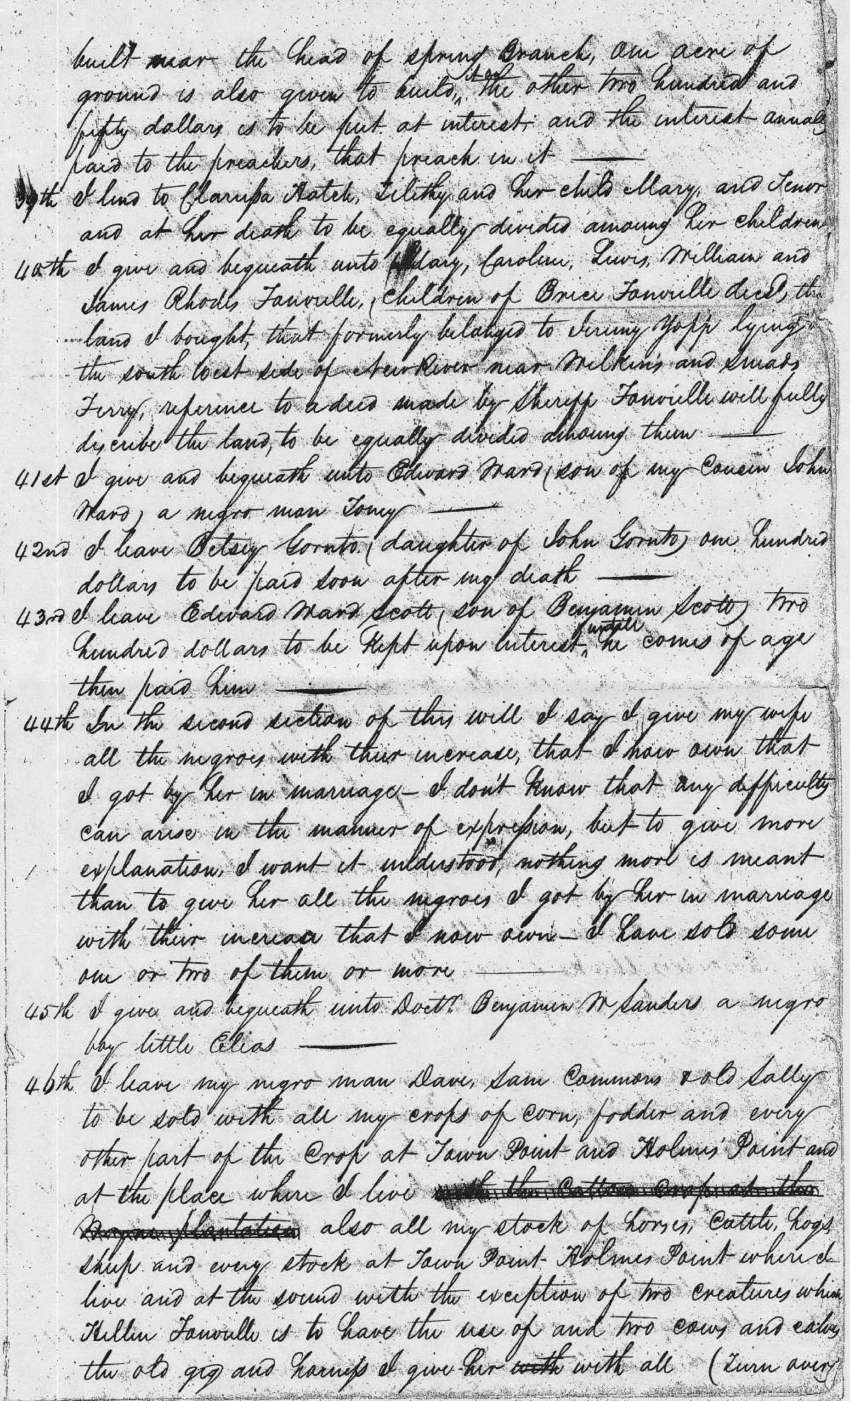 built near the head of spring Branch, one acre of
ground is also given to build, it on the other two hundred and
fifty dollars is to be put at interest, and the interest annualy
paid to the preachers, that preach in it
39th I lend to Clarissa Hatch, Tilithy and her child Mary, and Tenor
and at her death to be equally divided amoung her children,
40th I give and bequeath unto Mary, Caroline, Lewis, William and
James Rhodes Fonvielle, (children of Brice Fonvielle decd, the
land I bought, that formerly belonged to Jeremy Yopp lying
the south west side of New River near Wilkins and Sneads
Ferry, reference to a deed made by Sheriff Fonvielle will fully
discribe the land, to be equally divided amoung them
41st I give and bequeath unto Edward Ward (son of my Cousin John
Ward) a negro man Toney
42nd I leave Betsey Gornto (daughter of John Gornto) one hundred
dollars to be paid soon after my death
43rd I leave Edward Ward Scott (son of Benjamin Scott) two
hundred dollars to be kept upon interest, untill he comes of age
then paid him
44th In the second section of this will I say I give my wife
all the negroes with their increase, that I now own that
I got by her in marriage — I don't know that any difficulty
can arise in the manner of expression, but to give more
explanation, I want it understood, nothing more is meant
than to give her all the negroes I got by her in marriage
with their increase that I now own — I have sold some
one or two of them or more
45th I give and bequeath unto Doctr. Benjamin W Sanders a negro
boy little Elias
46th I leave my negro man Dave, Sam Commons & old Sally
to be sold with all my crops of corn, fodder and every
other part of the Crop at Town Point and Holmes' Point and
at the place where I live with the Cotton Crop at the
plantation also all my stock of horses, Cattle, hogs
sheep and every stock at Town Point Holmes Point where I
live and at the sound with the exception of two creatures which
Hellin Fonvielle is to have the use of and two cows and calves
the old gig and harness I give her with with all (Turn over)